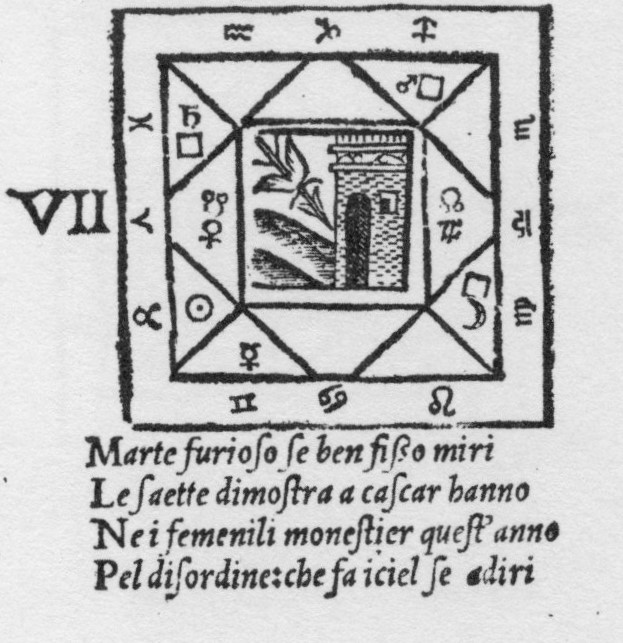 VII
Marte furioso se ben fisso miri
Le saette dimostra a cascar hanno
Ne i femenili monestier quest'anno
Pel disordine:che fa iciel se adiri